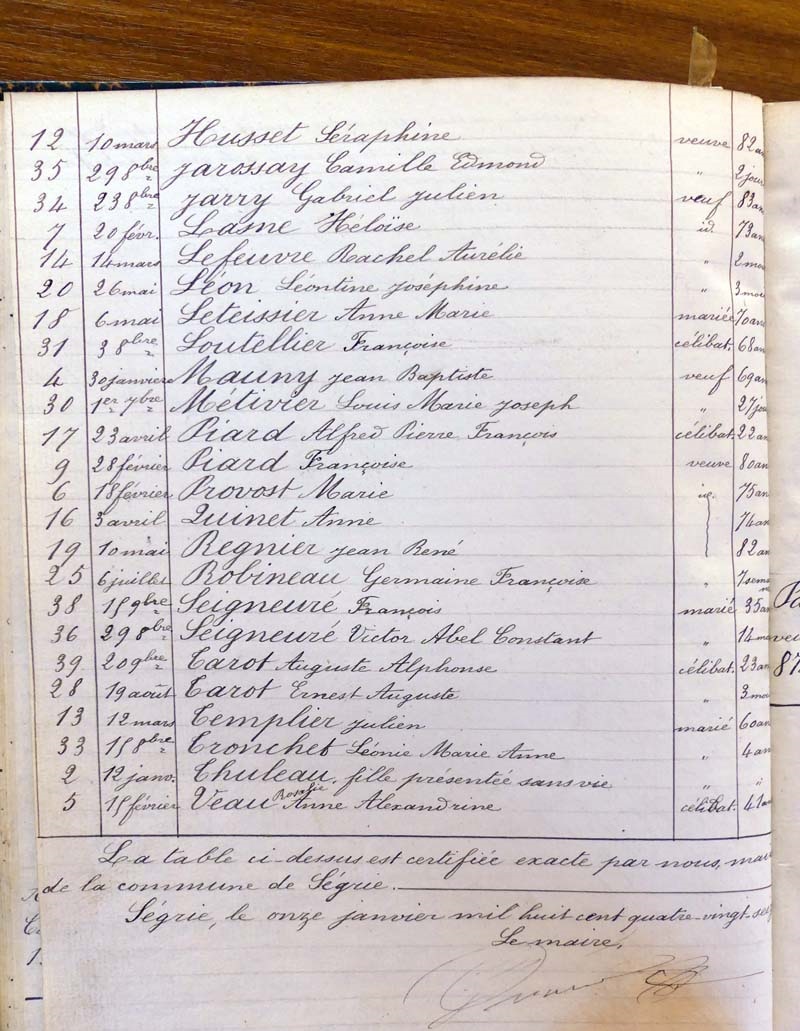 12 10 mars Husset Séraphine veuve 82 an
35 29 8bre Jarossay Camille Edmond " 2 jour
34 23 8bre Jarry Gabriel Julien veuf 83 an
7 20 févr. Lasne Héloïse id. 73 an
14 14 mars Lefeuvre Rachel Aurélie " 2 moi
20 26 mai Léon Léontine Joséphine " 3 moi
18 6 mai Leteissier Anne Marie mariée 70 an
31 3 8bre Loutellier Françoise célibat. 68 an
4 30 janvier Mauny Jean Baptiste veuf 69 an
30 1er 7bre Métivier Louis Marie Joseph " 27 jou
17 23 avril Piard Alfred Pierre François célibat. 22 an
9 28 février Piard Françoise veuve 80 an
6 18 février Provost Marie id. 75 an
16 3 avril Quinet Anne 74 an
19 10 mai Regnier Jean René 82 an
25 6 juillet Robineau Germaine Françoise " 7 sema
38 15 9bre Seigneuré François marié 35 an
36 29 8bre Seigneuré Victor Abel Constant " 14 m
39 20 9bre Tarot Auguste Alphonse célibat. 23 an
28 19 août Tarot Ernest Auguste " 3 mo
13 12 mars Templier Julien marié 60 an
33 15 8bre Tronchet Léonie Marie Anne " 4 an
2 12 janv. Thuleau, fille présentée sans vie " "
5 15 février Veau Rosalie Anne Alexandrine célibat. 41 an
La table ci-dessus est certifiée exacte par nous, mai
de la commune de Ségrie.
Ségrie, le onze janvier mil huit cent quatre-vingt-se
Le maire,
87